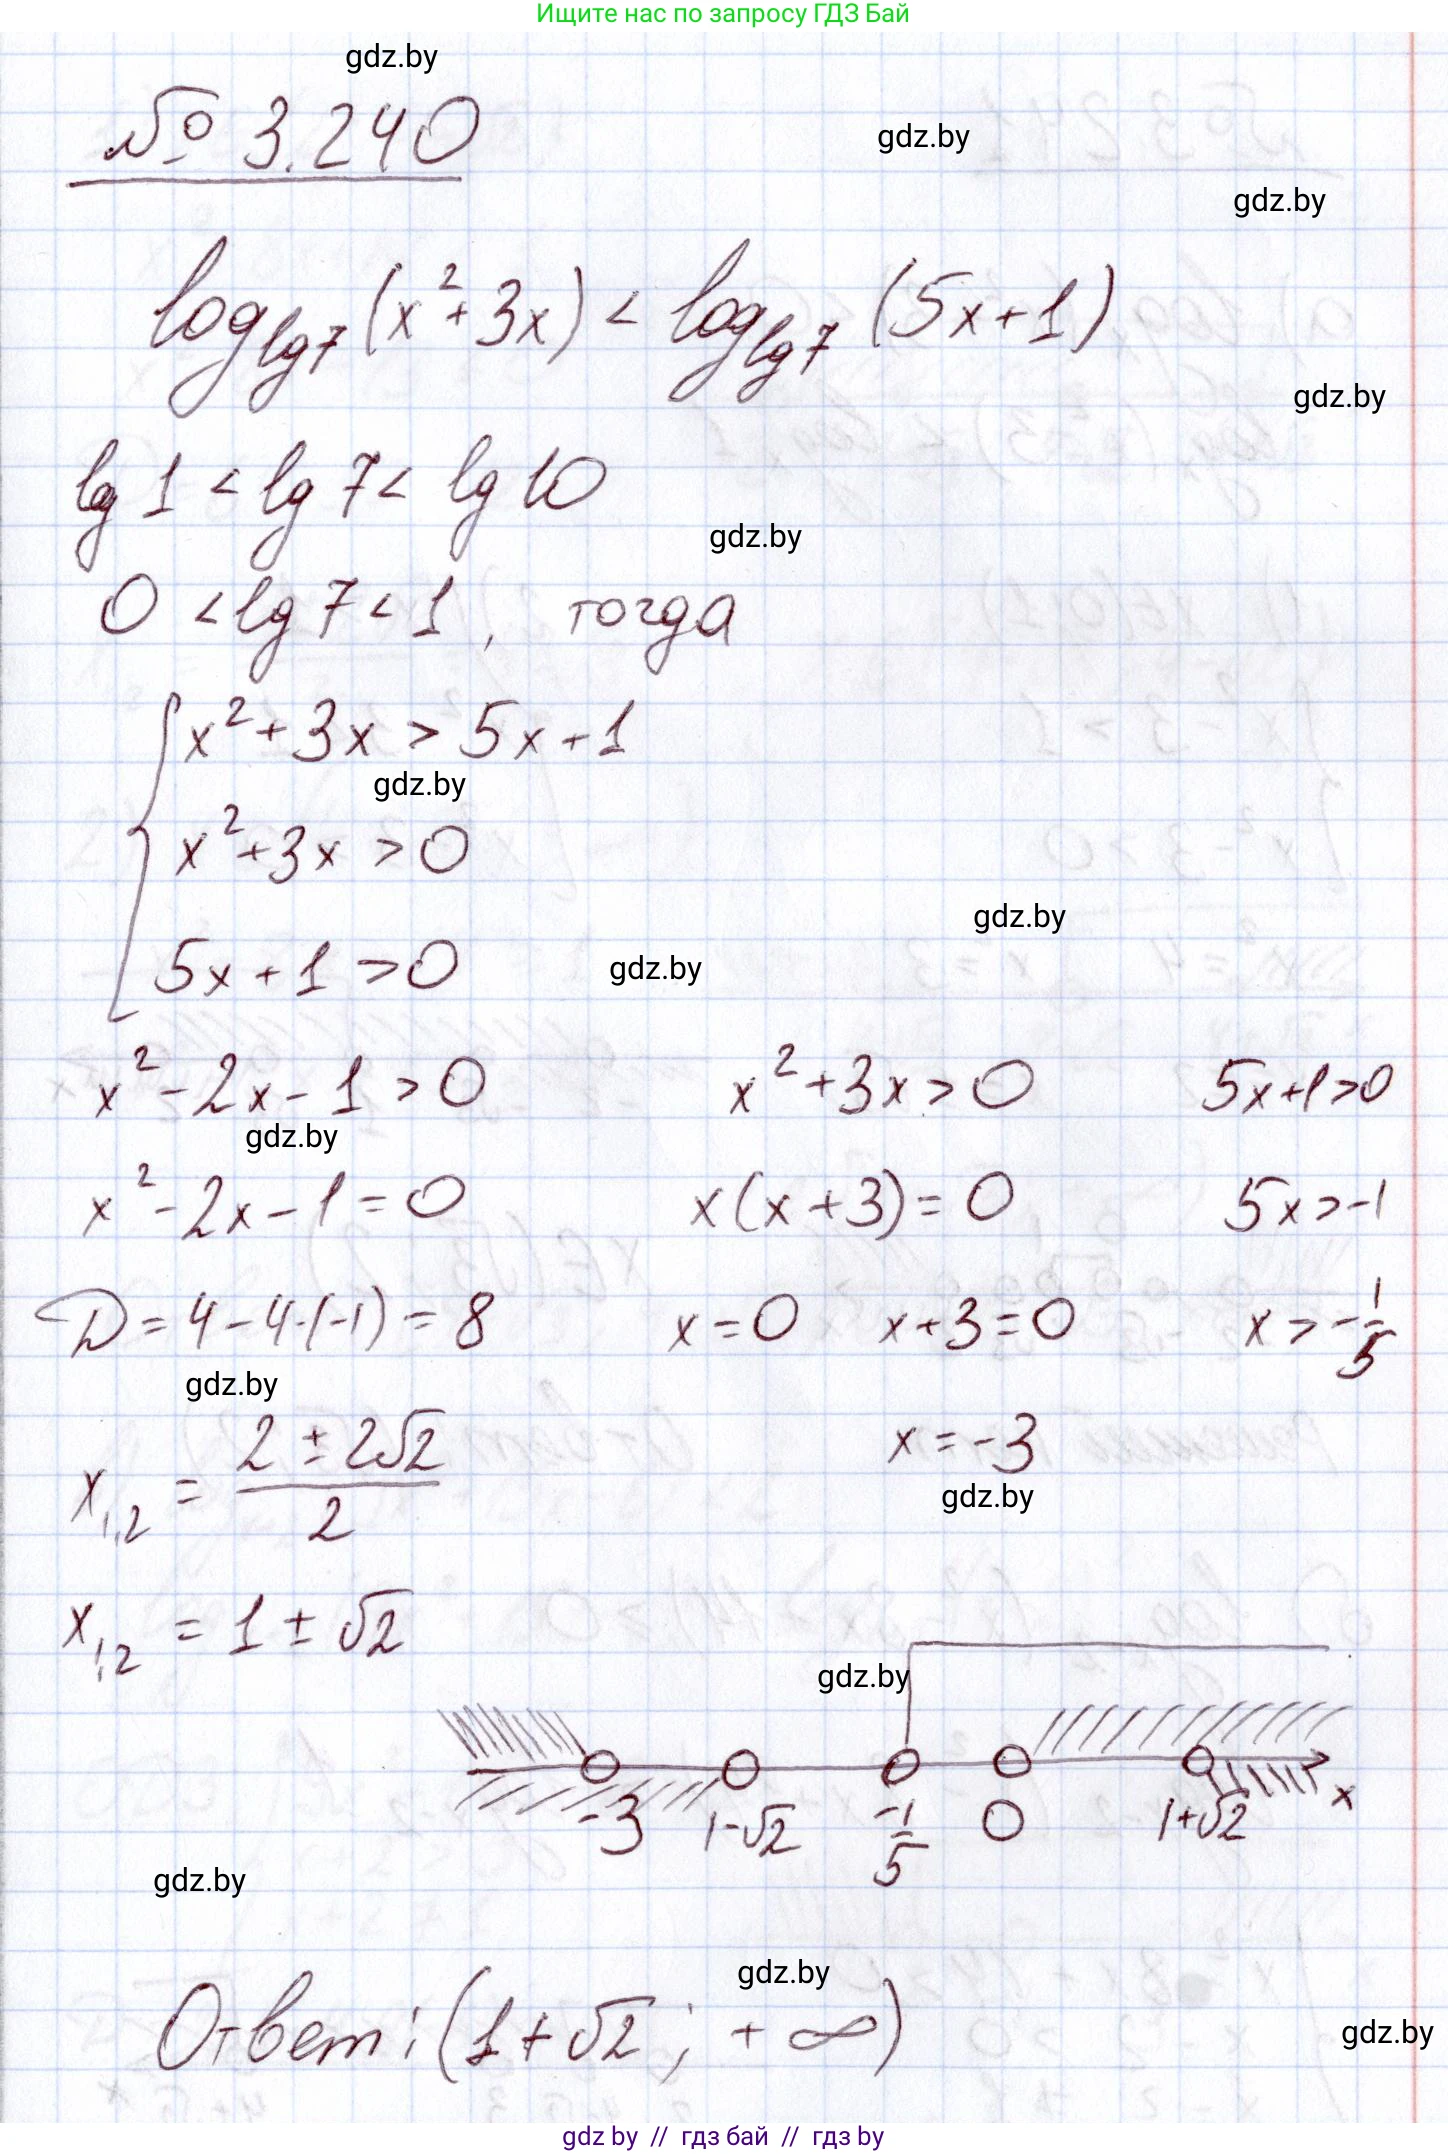 Ищите нас по запросу ГДЗ Бай
gdz.by
№ 3.240
gdz.by
gdz.by
log_lg7 (x² + 3x) < log_lg7 (5x+1)
gdz.by
lg 1 < lg 7 < lg 10
gdz.by
0 < lg 7 < 1, тогда
{ x² + 3x > 5x + 1
gdz.by
x² + 3x > 0
gdz.by
5x + 1 > 0
gdz.by
x² - 2x - 1 > 0 x² + 3x > 0 5x+1>0
gdz.by
x² - 2x - 1 = 0 x(x+3) = 0 5x > -1
D = 4 - 4·(-1) = 8 x = 0 x+3=0 x > -1/5
gdz.by
x₁,₂ = (2 ± 2√2)/2 x = -3
gdz.by
x₁,₂ = 1 ± √2
gdz.by
-3 1-√2 -1/5 0 1+√2 x
gdz.by
gdz.by
Ответ: (1+√2; +∞)
gdz.by
gdz by // гдз бай // гдз by